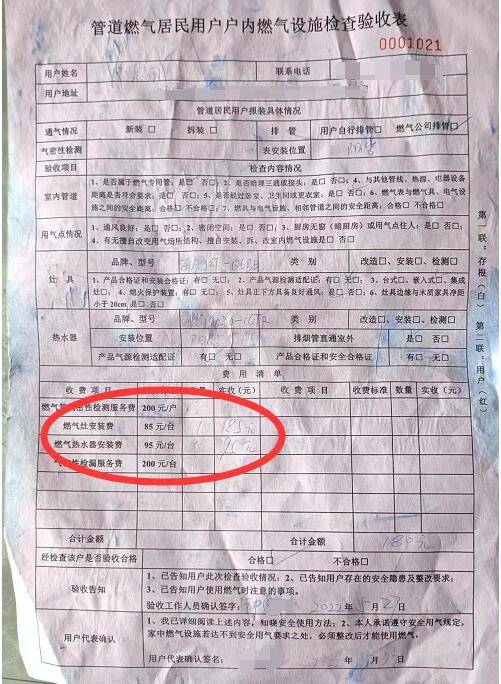 管道燃气居民用户户内燃气设施检查验收表
0001021
用户姓名 联系电话
用户地址
管道居民用户报装具体情况
通气情况 新装□ 拆装□ 排管 用户自行排管□ 燃气公司排管□
气密性检测 表安装位置 阳台
验收项目 检查内容情况
室内管道
1、是否属于燃气专用管：是□ 否□；2、是否暗埋三通或接头，是□ 否□；4、与其他管线、热源、电器设备
距离是否符合要求：是□ 否□；5、是否经过卧室、卫生间或更衣室：是□ 否□；6、燃气表与燃气具、电气设
施之间的安全距离：合格□ 不合格□；7、燃具与电气设施、相邻管道之间的安全距离，合格□ 不合格□
用气点情况
1、通风良好：是□ 否□；2、密闭空间：是□ 否□；3、厨房无窗（暗厨房）或用气点住人：是□ 否□；
4、有无擅自改变用气场所结构、擅自安装、拆、改室内燃气设施是□ 否
灶具
品牌、型号 类别 改造□、安装□、检测□
1、产品合格证和安装合格证：有□ 无□；2、产品气源检测适配证：有□ 无□；3、台式□、嵌入式□、集成
灶□；4、熄火保护装置：有□ 无□；5、灶具正下方具备良好通风：是□ 否□；6、灶具边缘与木质家具净距
小于20cm 是□ 否
热水器
品牌、型号 类别 改造□、安装□、检测□
安装位置 排烟管直通室外 是□ 否□
产品气源检测适配证 有□ 无□ 产品合格证和安全合格证 有□ 无□
费用清单
收费项目 数量 实收（元） 收费项目 收费标准 数量 实收（元）
燃气管气密性检测服务费 200元/户
燃气灶安装费 85元/台 1 85元
燃气热水器安装费 95元/台 1 95元
气密性检漏服务费 200元/台
合计金额 合计金额 180元
经检查该户是否验收合格 合格□ 不合格□
验收告知
1、已告知用户此次检查验收情况；2、已告知用户存在的安全隐患及整改要求；
3、已告知用户使用燃气时注意的事项。
验收工作人员确认签字： 2022年5月27日
用户代表确认
1、我已详细阅读上述内容，知晓安全使用方法；2、本人承诺遵守安全用气规定，
家中燃气设施若达不到安全用气要求之处，必须整改后才能使用燃气。
用户代表确认签名： 年 月 日
第一联：存根（白） 第二联：用户（红）